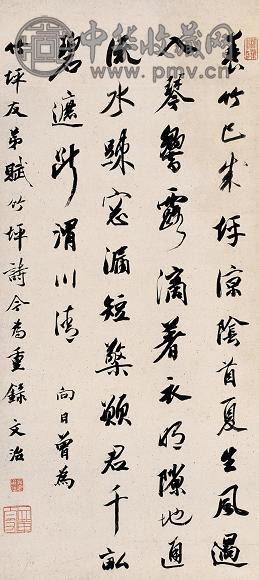 中华收藏网
www.pmv.cn
竹已成坪涼陰首夏生風過
入琴響露滴著衣明隙地通
流水疎窓漏短檠願君千畝
碧遮斷渭川清 向日曾為
竹坪友弟賦竹坪詩今為重錄 文治